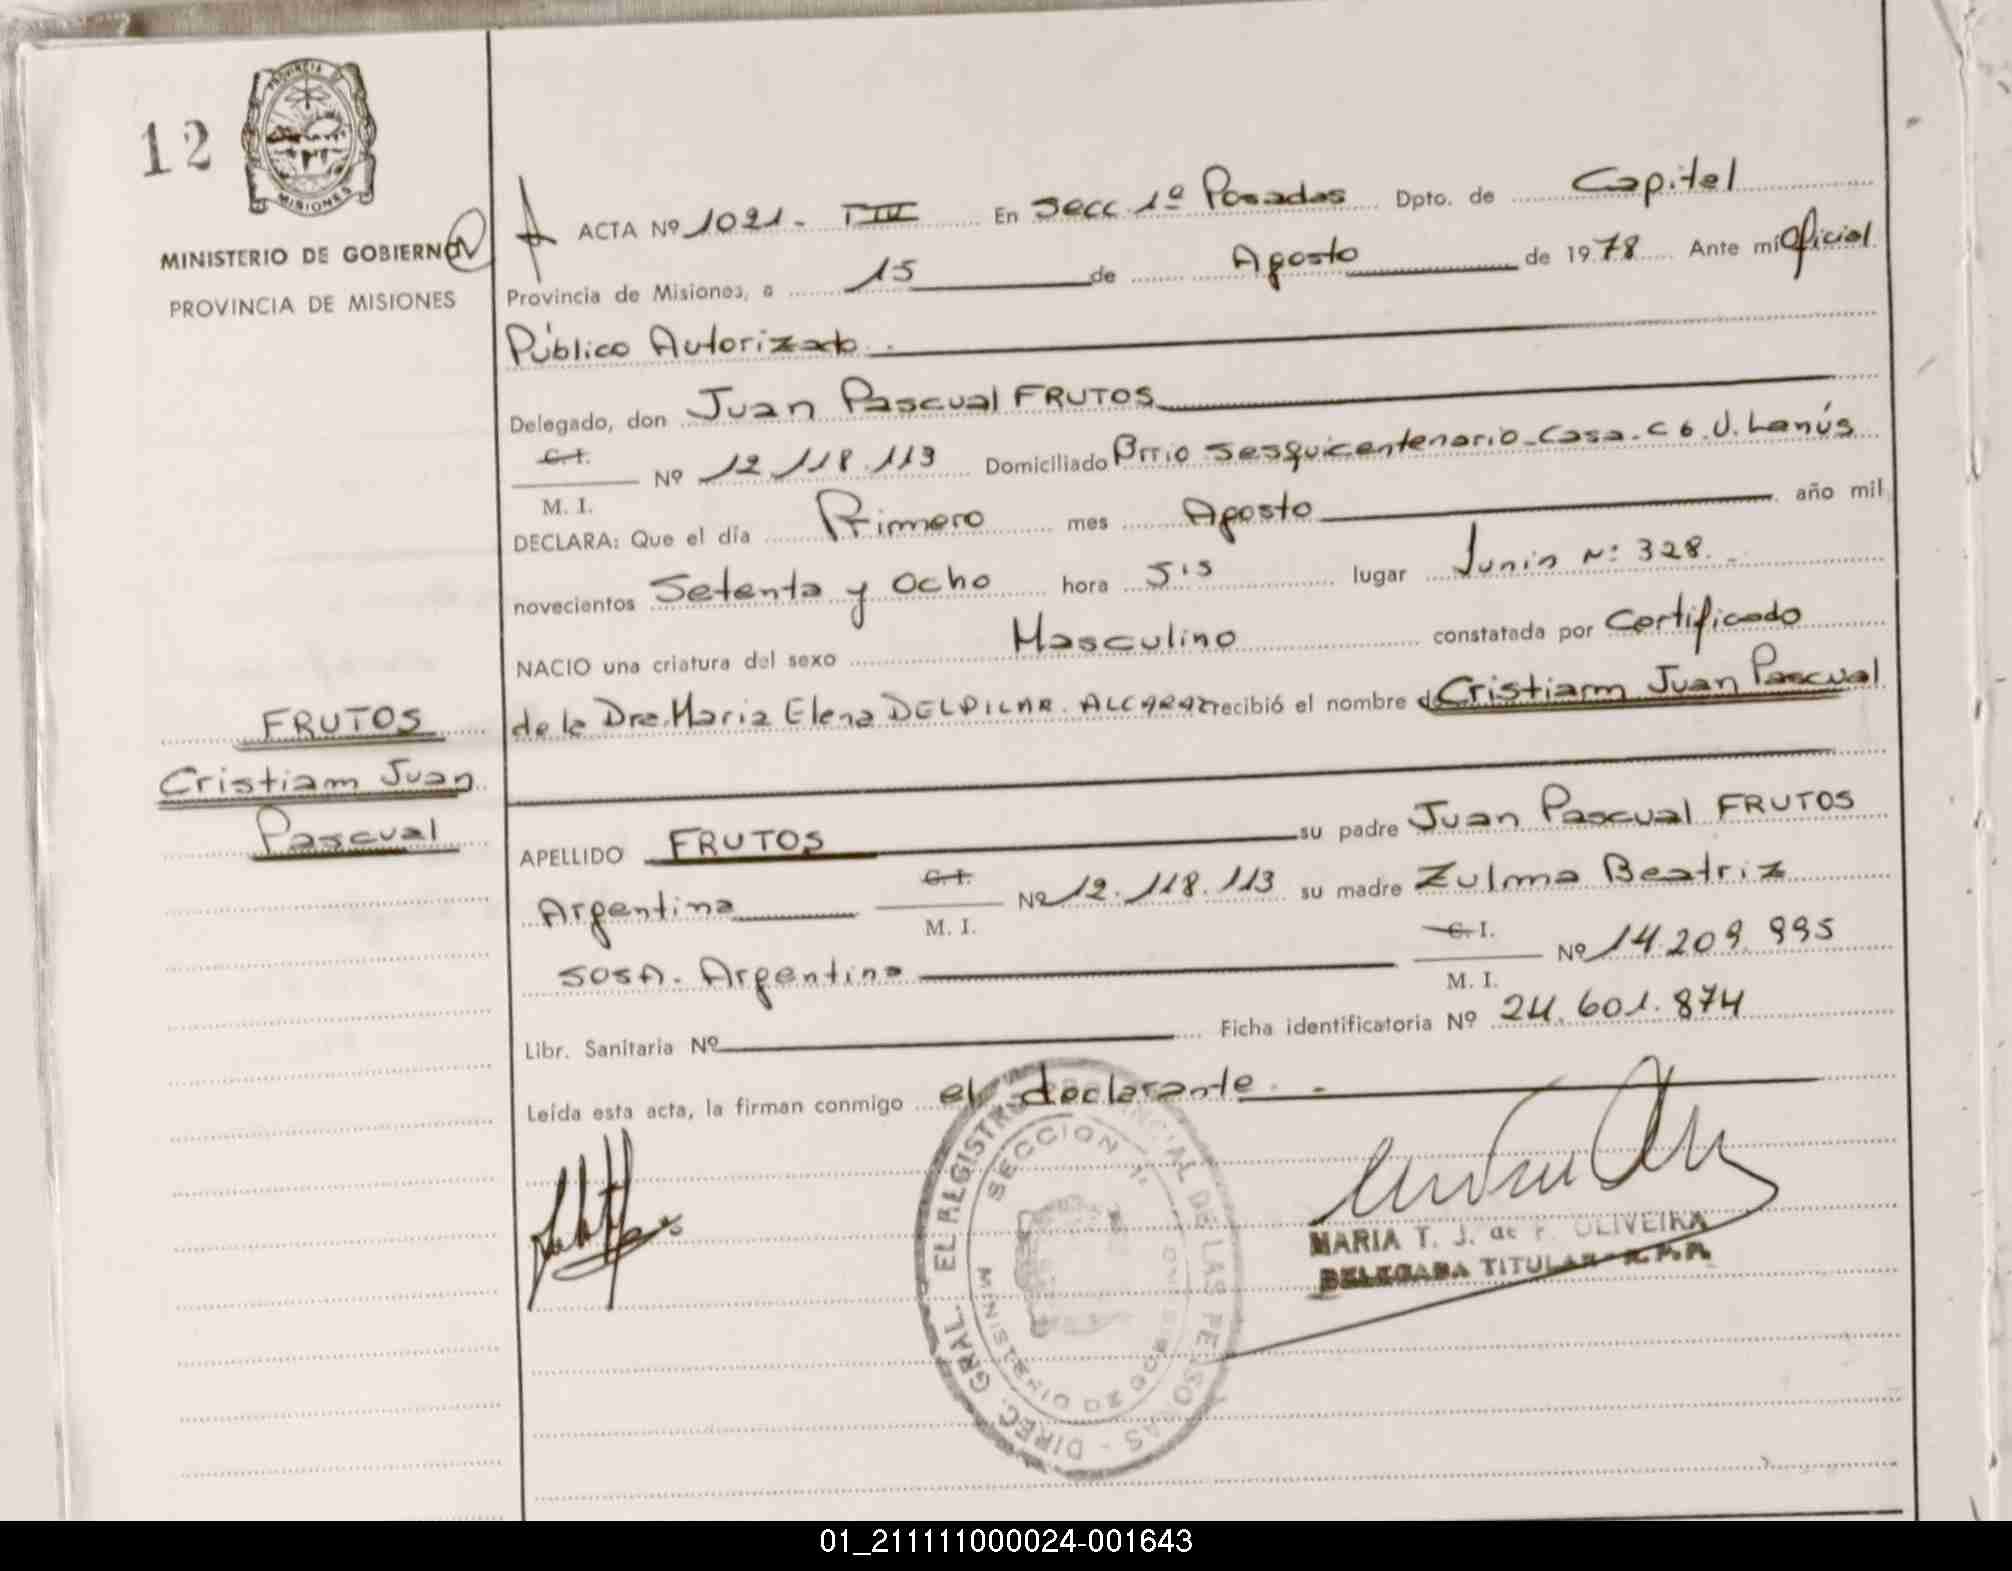 12
PROVINCIA DE
MISIONES
MINISTERIO DE GOBIERNO
PROVINCIA DE MISIONES
ACTA Nº 1021 - TIV En Secc. 1º Posadas Dpto. de Capitel
Provincia de Misiones, a 15 de Agosto de 1978 Ante mí Oficial
Público Autorizado.
Delegado, don Juan Pascual FRUTOS
C. I.
M. I. Nº 12.118.113 Domiciliado Brrio Sesquicentenario-Casa-C 6. U. Lanús
DECLARA: Que el día Primero mes Agosto año mil
novecientos Setenta y Ocho hora 5'15 lugar Junin Nº 328.
NACIO una criatura del sexo Masculino constatada por Certificado
de la Dra. Maria Elena DELPILAR. ALCARAZ recibió el nombre de Cristiam Juan Pascual
FRUTOS
Cristiam Juan
Pascual
APELLIDO FRUTOS su padre Juan Pascual FRUTOS
Argentina C. I. M. I. Nº 12.118.113 su madre Zulma Beatriz
SOSA. Argentina C. I. M. I. Nº 14.209.995
Libr. Sanitaria Nº Ficha identificatoria Nº 24.601.874
Leída esta acta, la firman conmigo el declarante.
DIREC. GRAL. EL REGISTRO PROVINCIAL DE LAS PERSONAS
SECCION 1ª
MARIA T. J. de F. OLIVEIRA
DELEGADA TITULAR - R.P.P.
01_211111000024-001643